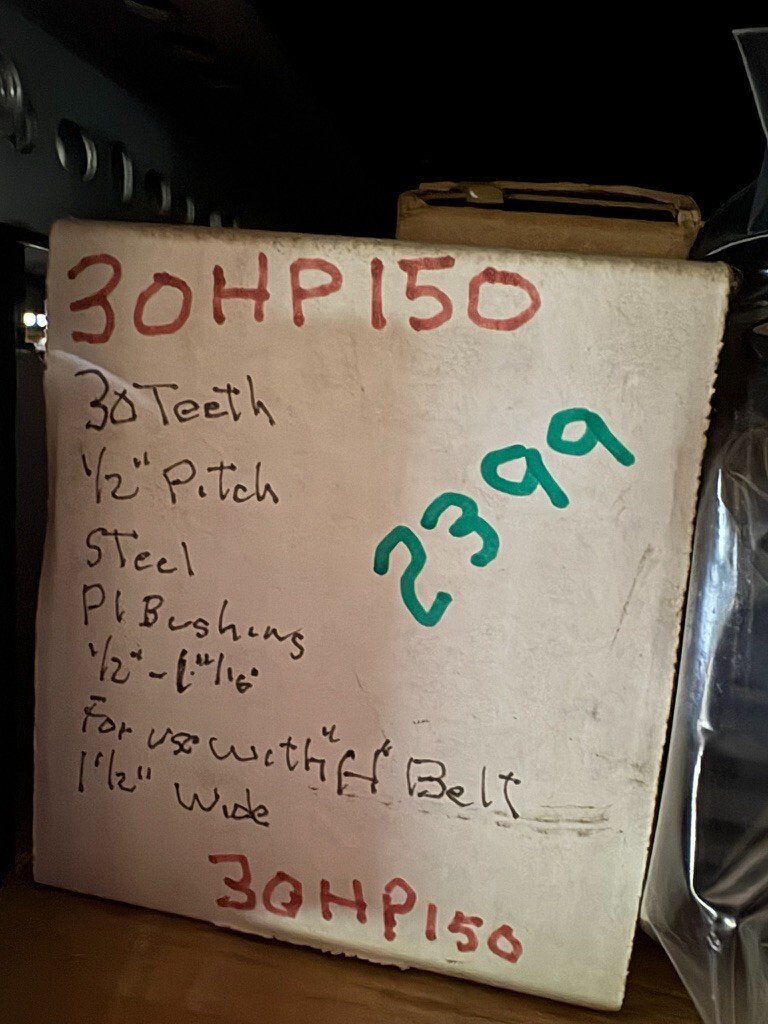 30HP150
30 Teeth
1/2" Pitch
2399
Steel
P1 Bushings
1/2" - 1 11/16"
For use with "H" Belt
1 1/2" Wide
30HP150